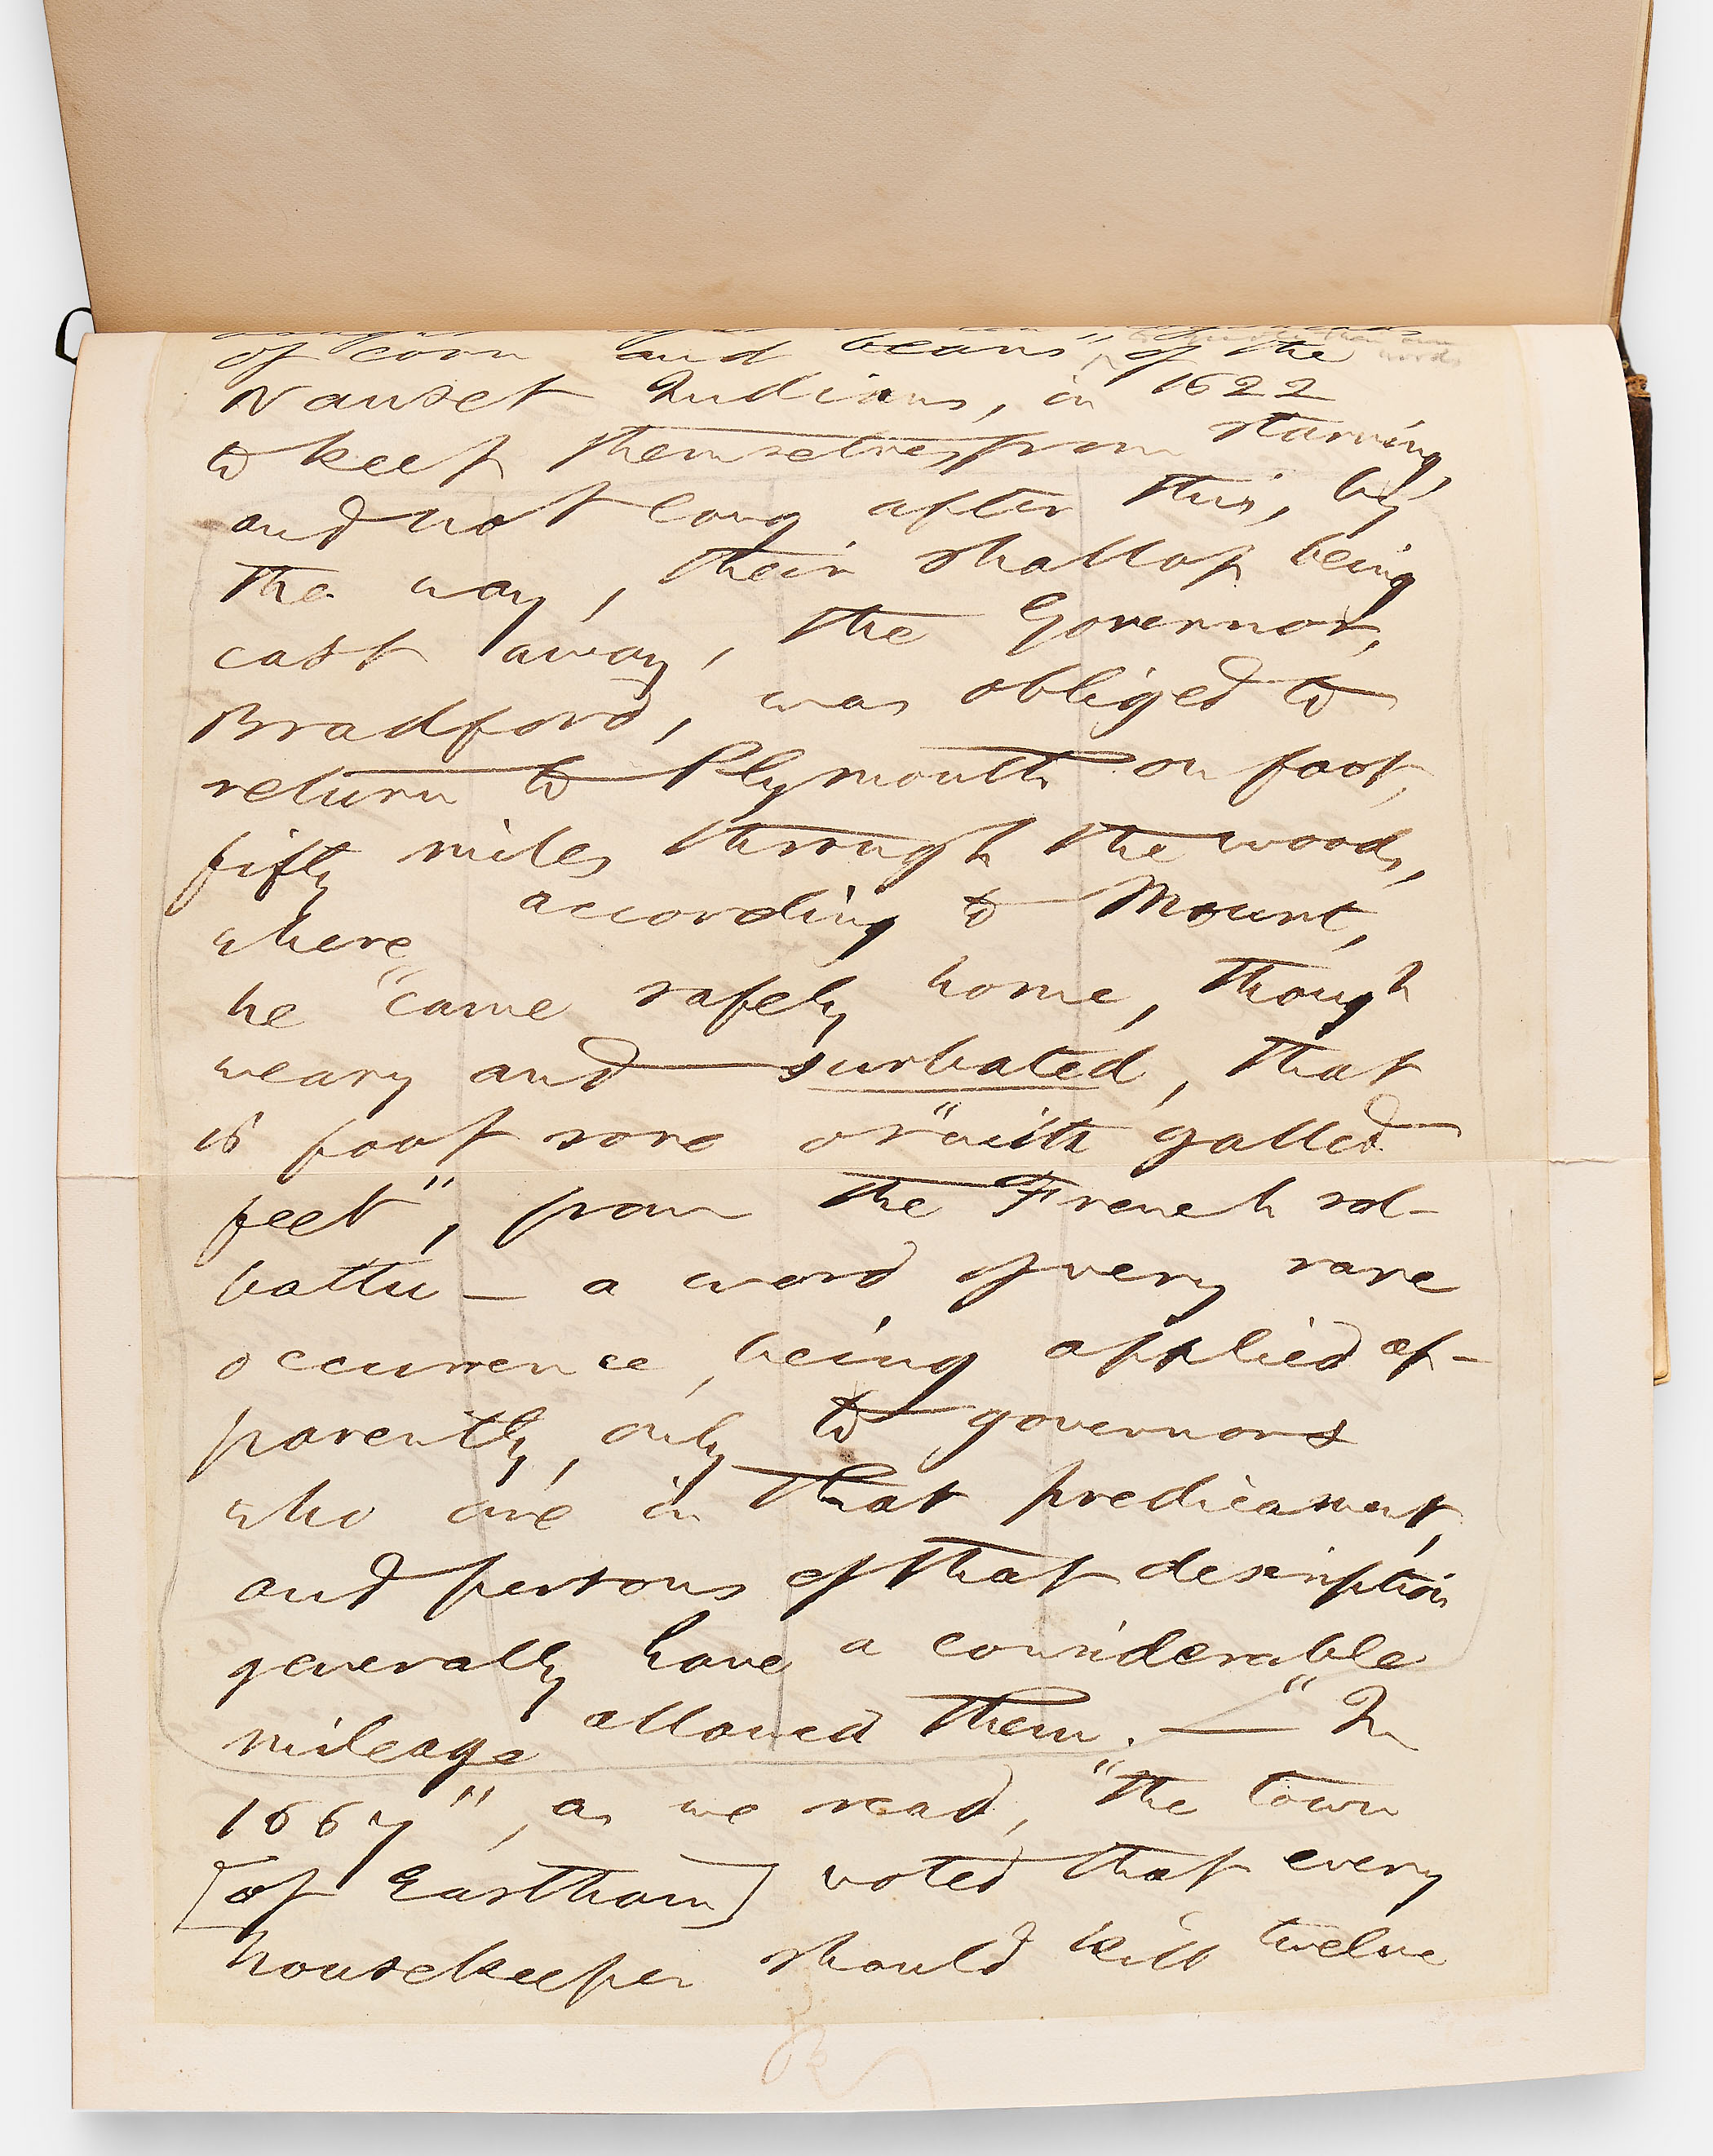 of corn and beans" of the
Nauset Indians, in 1622
to keep themselves from starving,
and not long after this, by
the way, their shallop being
cast away, the Governor,
Bradford, was obliged to
return to Plymouth on foot,
fifty miles through the woods,
where according to Mourt,
he "came safely home, though
weary and surbated, that
is foot sore or "with galled
feet", from the French sol-
battu — a word of very rare
occurrence, being applied ap-
parently, only to governors
who are in that predicament,
and persons of that description
generally have a considerable
mileage allowed them. — "In
1667", as we read, "the town
[of Eastham] voted that every
housekeeper should kill twelve